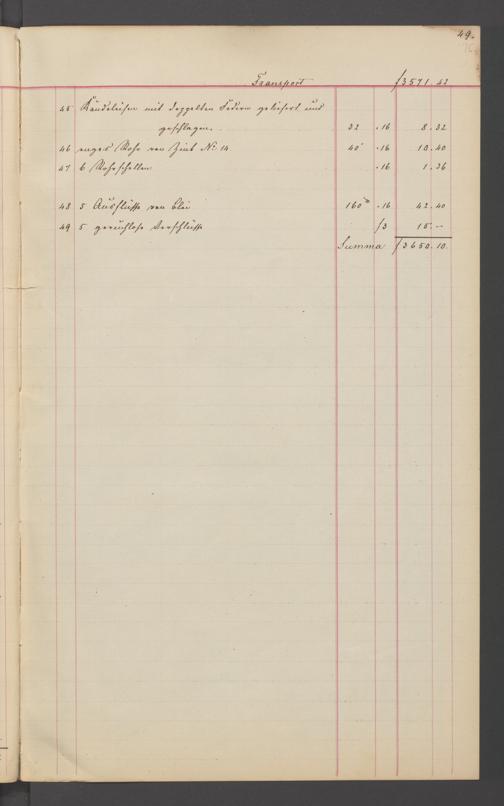 49.
Transport f 3571. 42
45 Kändeleisen mit doppelten Federn geliefert und
geschlagen. 32 . 16 8. 32
46 enges Rohr von Zink No 14 40' . 16 10. 40
47 6 Rohrschellen . 16 1. 36
48 5 Ausflüsse von Blei 160 . 16 42. 40
49 5 geruchlose Verschlüsse f 3 15. –
Summa f 3650. 10.